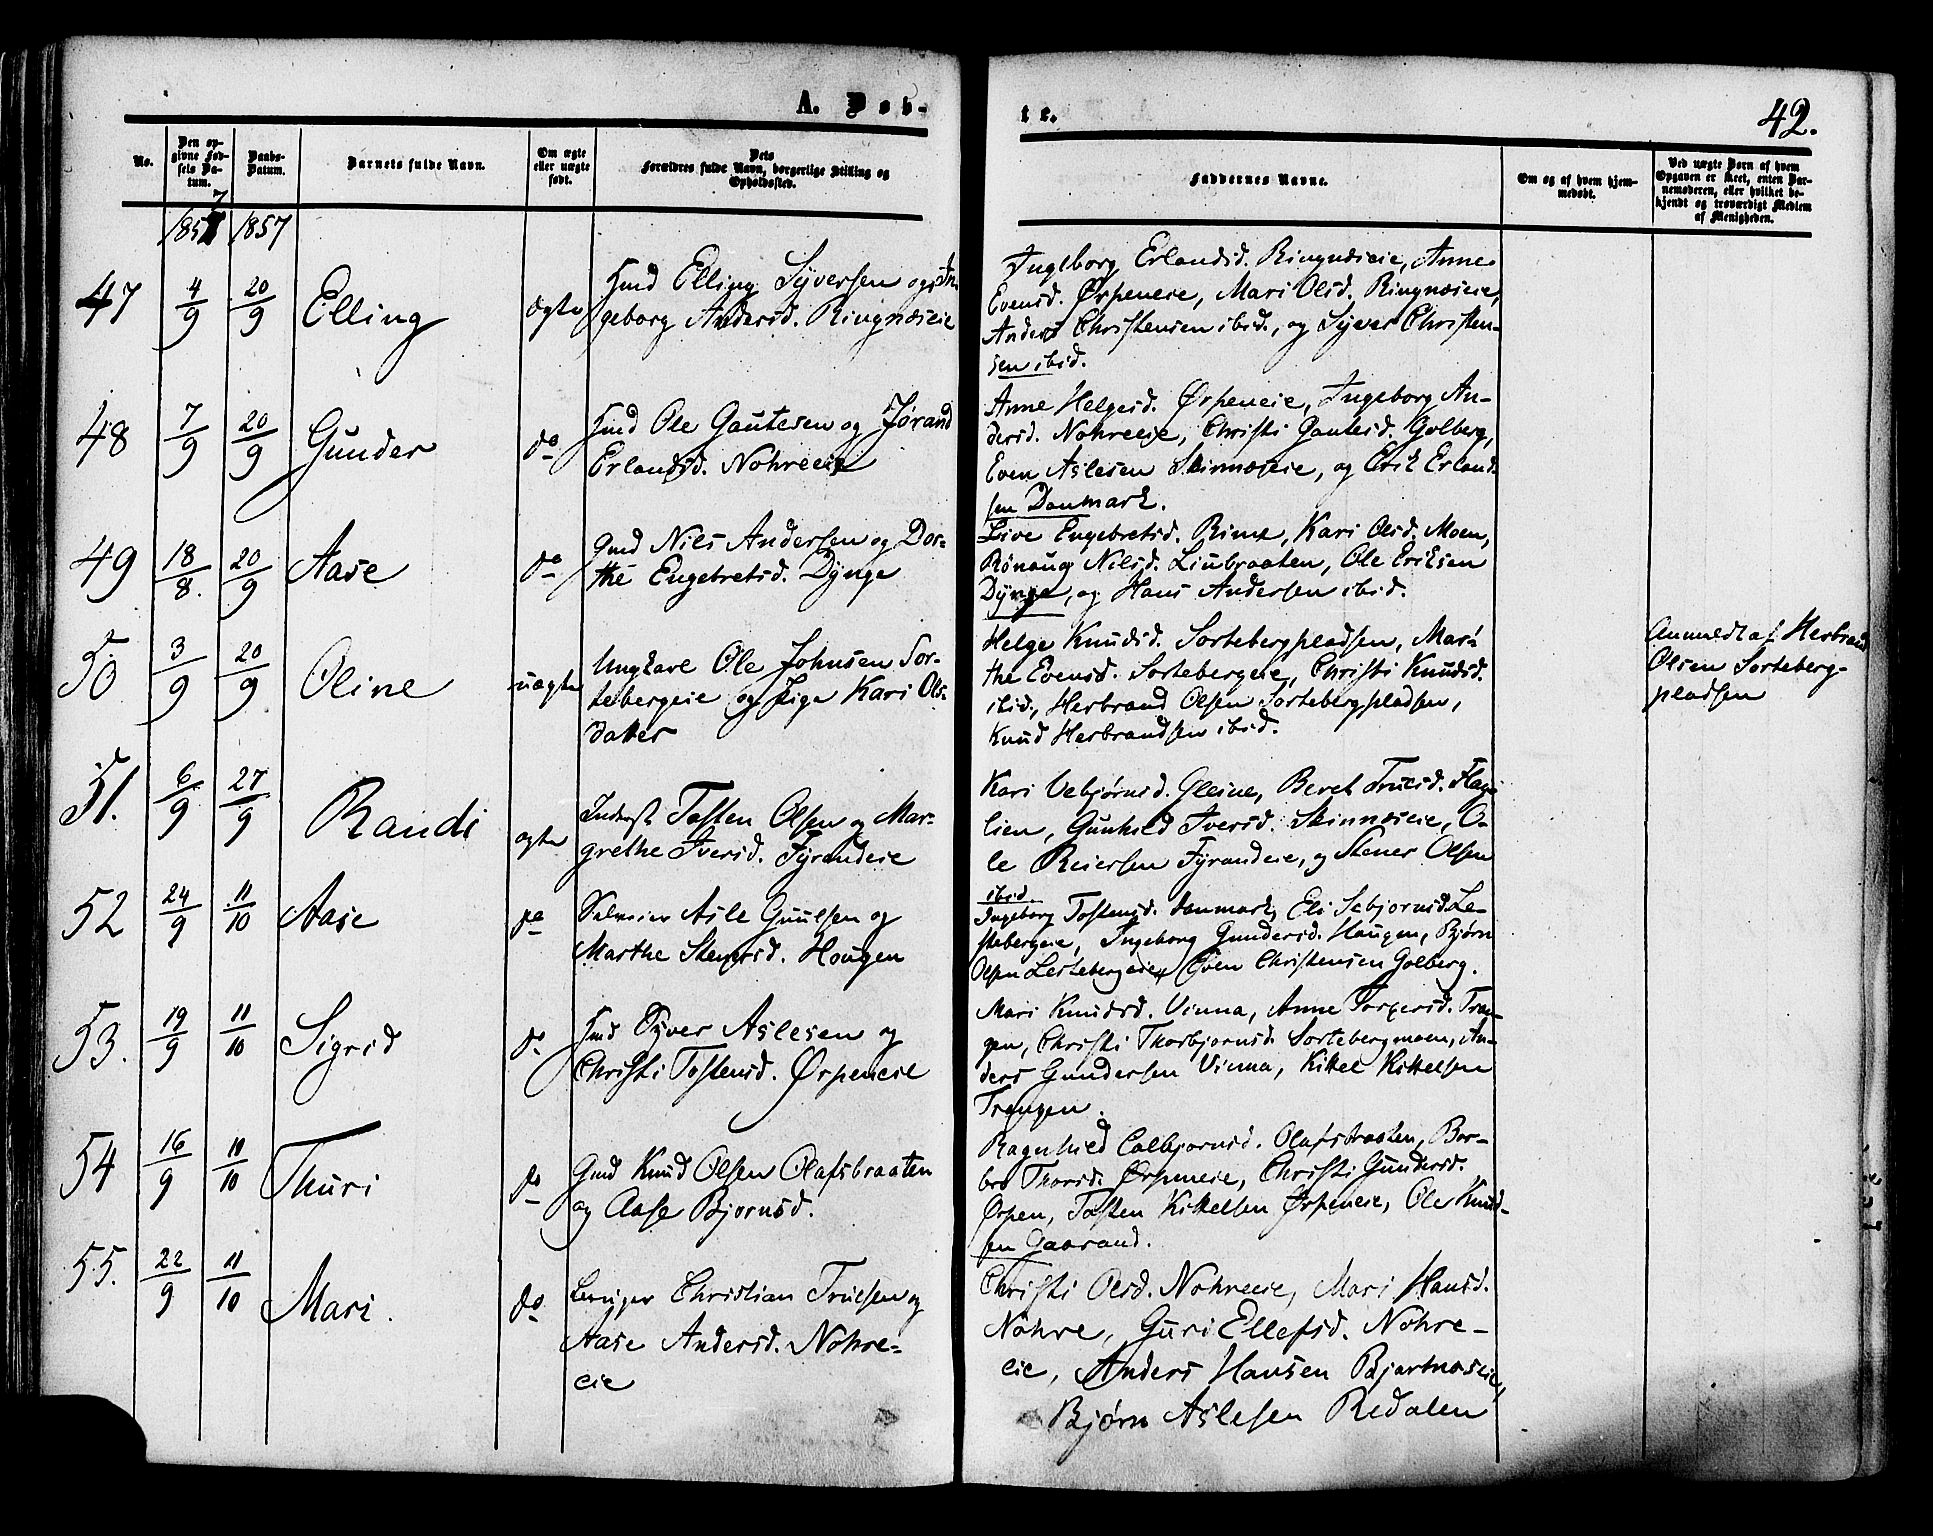 A. Døb-
te.
42.
No.
Den op-
givne Fød-
sels Da-
tum.
Daabs-
Datum.
Barnets fulde Navn.
Om ægte
eller uægte
født.
Dets
Forældres fulde Navn, borgerlige Stilling og
Opholdssted.
Faddernes Navne.
Om og af hvem hjem-
medøbt.
Ved uægte Børn af hvem
Opgaven er skeet, enten Bar-
nemoderen, eller hvilket be-
kjendt og troværdigt Medlem
af Menigheden.
1857 1857
47 4/9 20/9 Elling ægte
Hmd Elling Syversen og In-
geborg Andersd. Ringnæseie
Ingeborg Erlandsd. Ringnæseie, Anne
Evensd. Ørpeneie, Mari Olsd. Ringnæseie,
Anders Christensen ibid., og Syver Christen-
sen ibid.
48 7/9 20/9 Gunder do
Hmd Ole Gautesen og Jørand
Erlandsd. Nohreeie
Anne Helgesd. Ørpeneie, Ingeborg An-
dersd. Nohreeie, Christi Gautesd. Golberg,
Even Aslesen Skinnæseie, og Erik Erland-
sen Danmark.
49 18/8. 20/9 Aase do
Gmd Nils Andersen og Dor-
the Engebretsd. Dynge
Live Engebretsd. Rime, Kari Olsd. Moen,
Rønaug Nilsd. Liubraaten, Ole Eriksen
Dynge, og Hans Andersen ibid.
50 3/9 20/9 Oline uægte
Ungkarl Ole Johnsen Sor-
tebergeie og Pige Kari Ols-
datter
Helge Knudsd. Sortebergpladsen, Mar-
the Evensd. Sortebergeie, Christi Knudsd.
ibid., Herbrand Olsen Sortebergpladsen,
Knud Herbrandsen ibid.
Anmeldt af Herbrand
Olsen Sorteberg-
pladsen
51. 6/9 27/9 Randi ægte
Inderst Tosten Olsen og Mar-
grethe Iversd. Fyrandeie
Kari Vebjørnsd. Gleine, Beret Truesd. Hage-
lien, Gunhild Iversd. Skinnæseie, O-
le Reiersen Fyrandeie, og Stener Olsen
ibid.
52 24/9 11/10 Aase do
Selveier Asle Guulsen og
Marthe Stenersd. Hougen
Ingeborg Tostensd. Danmark, Eli Sebjørnsd. Le-
stebergeie, Ingeborg Gundersd. Haugen, Bjørn
Olsen Lestebergeie, Even Christensen Golberg.
53. 19/9 11/10 Sigrid do
Hmd Syver Aslesen og
Christi Tostensd. Ørpeneie
Mari Knudsd. Vinna, Anne Torgersd. Tran-
gen, Christi Thorbjørnsd. Sortebergmoen, An-
ders Gundersen Vinna, Kittel Kittelsen
Trangen.
54 16/9 11/10 Thuri do
Gmd Knud Olsen Olafsbraaten
og Aase Bjørnsd.
Ragnhild Colbjørnsd. Olafsbraaten, Bar-
bro Thorsd. Ørpeneie, Christi Gundersd.
Ørpen, Tosten Kittelsen Ørpeneie, Ole Knud-
sen Gaarand.
55. 22/9 11/10 Mari. do
Christian Truelsen og
Aase Andersd. Nohre-
eie
Christi Olsd. Nohreeie, Mari Hansd.
Nohre, Guri Ellefsd. Nohre-
eie, Anders Hansen Bjørtnæseie,
Bjørn Aslesen Redalen